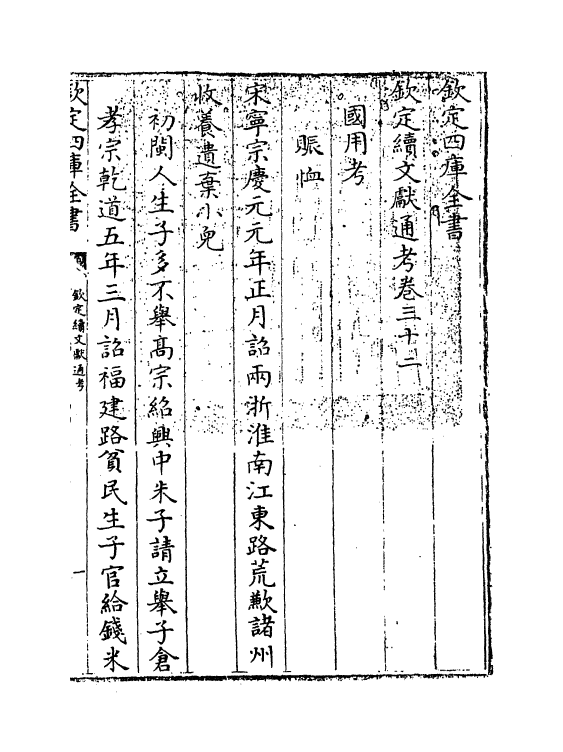 欽定四庫全書
欽定續文獻通考卷三十二
國用考
賑恤
宋寧宗慶元元年正月詔兩浙淮南江東路荒歉諸州
收養遺棄小兒
初閩人生子多不舉高宗紹興中朱子請立舉子倉
孝宗乾道五年三月詔福建路貧民生子官給錢米
欽定四庫全書
欽定續文獻通考
一